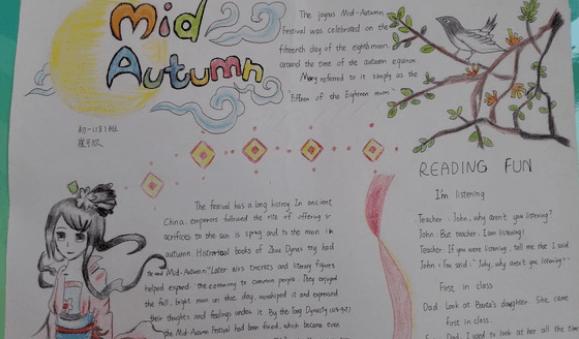 Mid
Autumn
The joyous Mid-Autumn
Festival was celebrated on the
fifteenth day of the eighth moon,
around the time of the autumn equinox.
Many referred to it simply as the
"Fifteen of the Eighteen moon".
初一(3)班
The festival has a long history. In ancient
China, emperors followed the rite of offering
sacrifices to the sun in spring and to the moon in
autumn. Historical books of Zhou Dynas had
Mid-Autumn" Later and literary figures
helped expand the ceremony to common people. They enjoyed
the full, bright moon on that day, worshiped it and expressed
their thoughts and feelings under it. By the Tang Dynasty
the Mid-Autumn Festival had been fixed, which became even
READING FUN
I'm listening
Teacher: John, why aren't you listening?
John: But teacher, I am listening!
Teacher: If you were listening, tell me the I said
John: You said: "John, why aren't you listening?"
First in class
Dad: Look at daughter. She came
first in class.
Dad, I used to look at her all the time